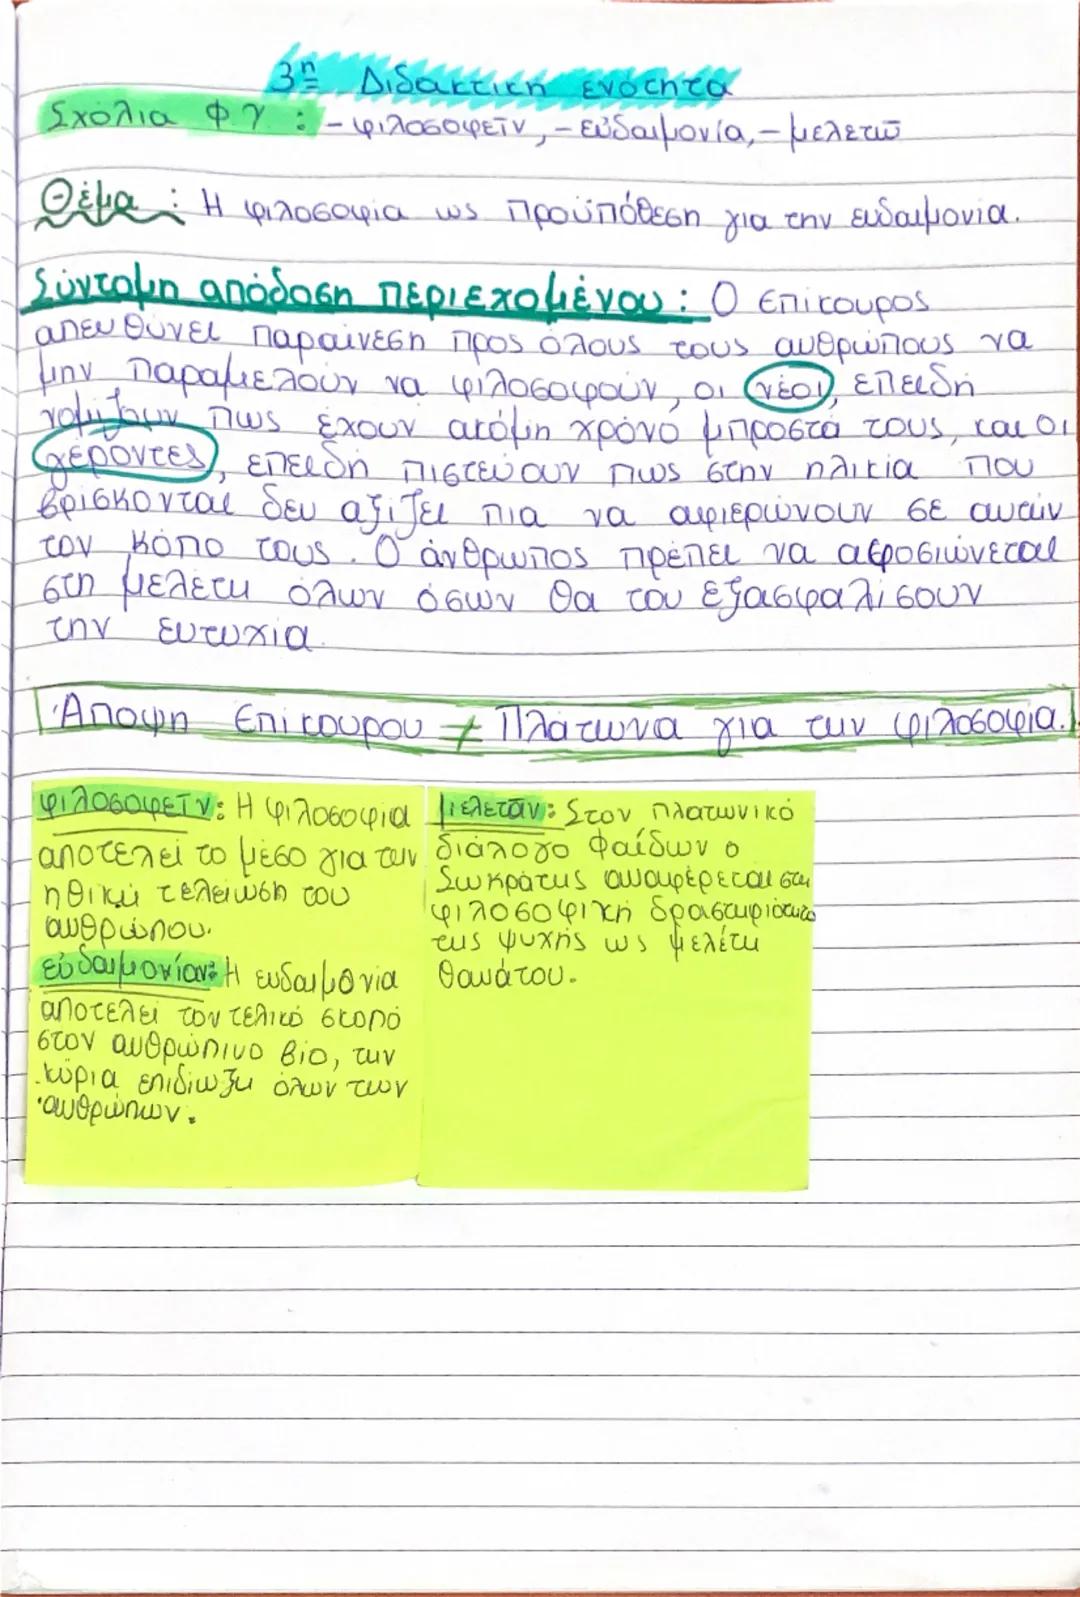 3η Διδακτική ενότητα
Σχόλια Φ.γ : - φιλοσοφεῖν, - εὐδαιμονία, - μελετῶ
Θέμα : Η φιλοσοφία ως προϋπόθεση για την ευδαιμονία.
Σύντομη απόδοση περιεχομένου : Ο Επίκουρος
απευθύνει παραίνεση προς όλους τους ανθρώπους να
μην παραμελούν να φιλοσοφούν, οι νέοι, επειδή
νομίζουν πως έχουν ακόμη χρόνο μπροστά τους, και οι
γέροντες, επειδή πιστεύουν πως στην ηλικία που
βρίσκονται δεν αξίζει πια να αφιερώνουν σε αυτήν
τον κόπο τους. Ο άνθρωπος πρέπει να αφοσιώνεται
στη μελέτη όλων όσων θα του εξασφαλίσουν
την ευτυχία.
Άποψη Επίκουρου ≠ Πλάτωνα για την φιλοσοφία.
φιλοσοφεῖν: Η φιλοσοφία
αποτελεί το μέσο για την
ηθική τελείωση του
ανθρώπου.
εὐδαιμονίαν: Η ευδαιμονία
αποτελεί τον τελικό σκοπό
στον ανθρώπινο βίο, την
κύρια επιδίωξη όλων των
ανθρώπων.
μελετᾶν: Στον πλατωνικό
διάλογο Φαίδων ο
Σωκράτης αναφέρεται στη
φιλοσοφική δραστηριότητα
της ψυχής ως μελέτη
θανάτου.